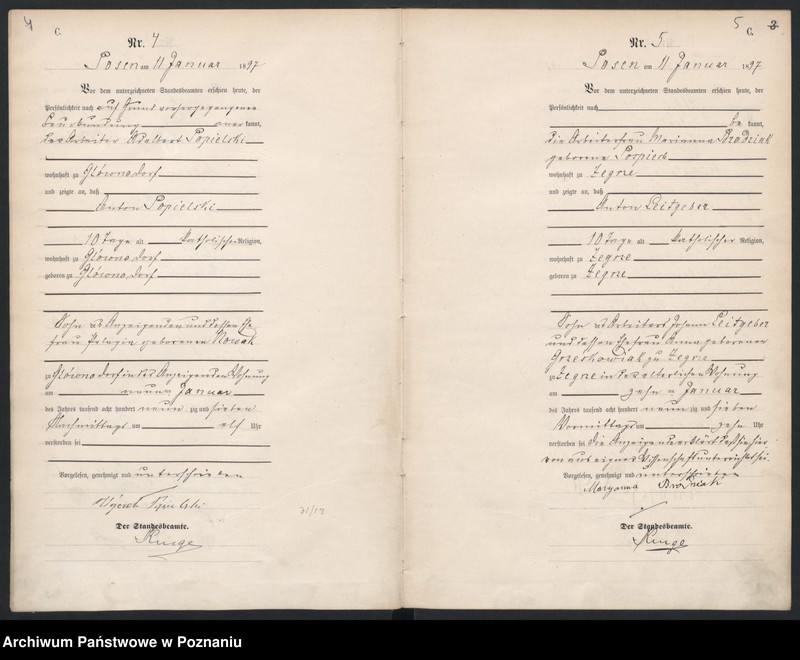 4
C.
Nr. 4
Posen am 11 Januar 1897
Vor dem unterzeichneten Standesbeamten erschien heute, der
Persönlichkeit nach auf Grund vorhergegangener
Beurkundung aner kannt,
der Arbeiter Adalbert Popielski
wohnhaft zu Glówno Dorf
und zeigte an, daß
Anton Popielski
10 Tage alt katholischer Religion,
wohnhaft zu Glówno Dorf
geboren zu Glówno Dorf
Sohn des Anzeigenden und dessen Ehe
frau Pelagia geborenen Nowak
zu Glówno Dorf in des Anzeigenden Wohnung
am neunten Januar
des Jahres tausend acht hundert neunzig und sieben
Nachmittags um elf Uhr
verstorben sei
Vorgelesen, genehmigt und unterschrieben
Der Standesbeamte.
31/12
5
C. 3
Nr. 5
Posen am 11 Januar 1897
Vor dem unterzeichneten Standesbeamten erschien heute, der
Persönlichkeit nach
be kannt,
die Arbeiterfrau Marianna Brodziak
geborene Pospiech
wohnhaft zu Zegrze
und zeigte an, daß
Anton Leitgeber
10 Tage alt katholischer Religion,
wohnhaft zu Zegrze
geboren zu Zegrze
Sohn des Arbeiters Johann Leitgeber
und dessen Ehefrau Anna geborenen
Grzeskowiak zu Zegrze
zu Zegrze in der elterlichen Wohnung
am zehnten Januar
des Jahres tausend acht hundert neunzig und sieben
Vormittags um zehn Uhr
verstorben sei die Anzeigende erklärt daß sie hier
von aus eigener Wissenschaft unterrichtet sei.
Vorgelesen, genehmigt und unterschrieben
Maryanna Brodniak
Der Standesbeamte.
Archiwum Państwowe w Poznaniu